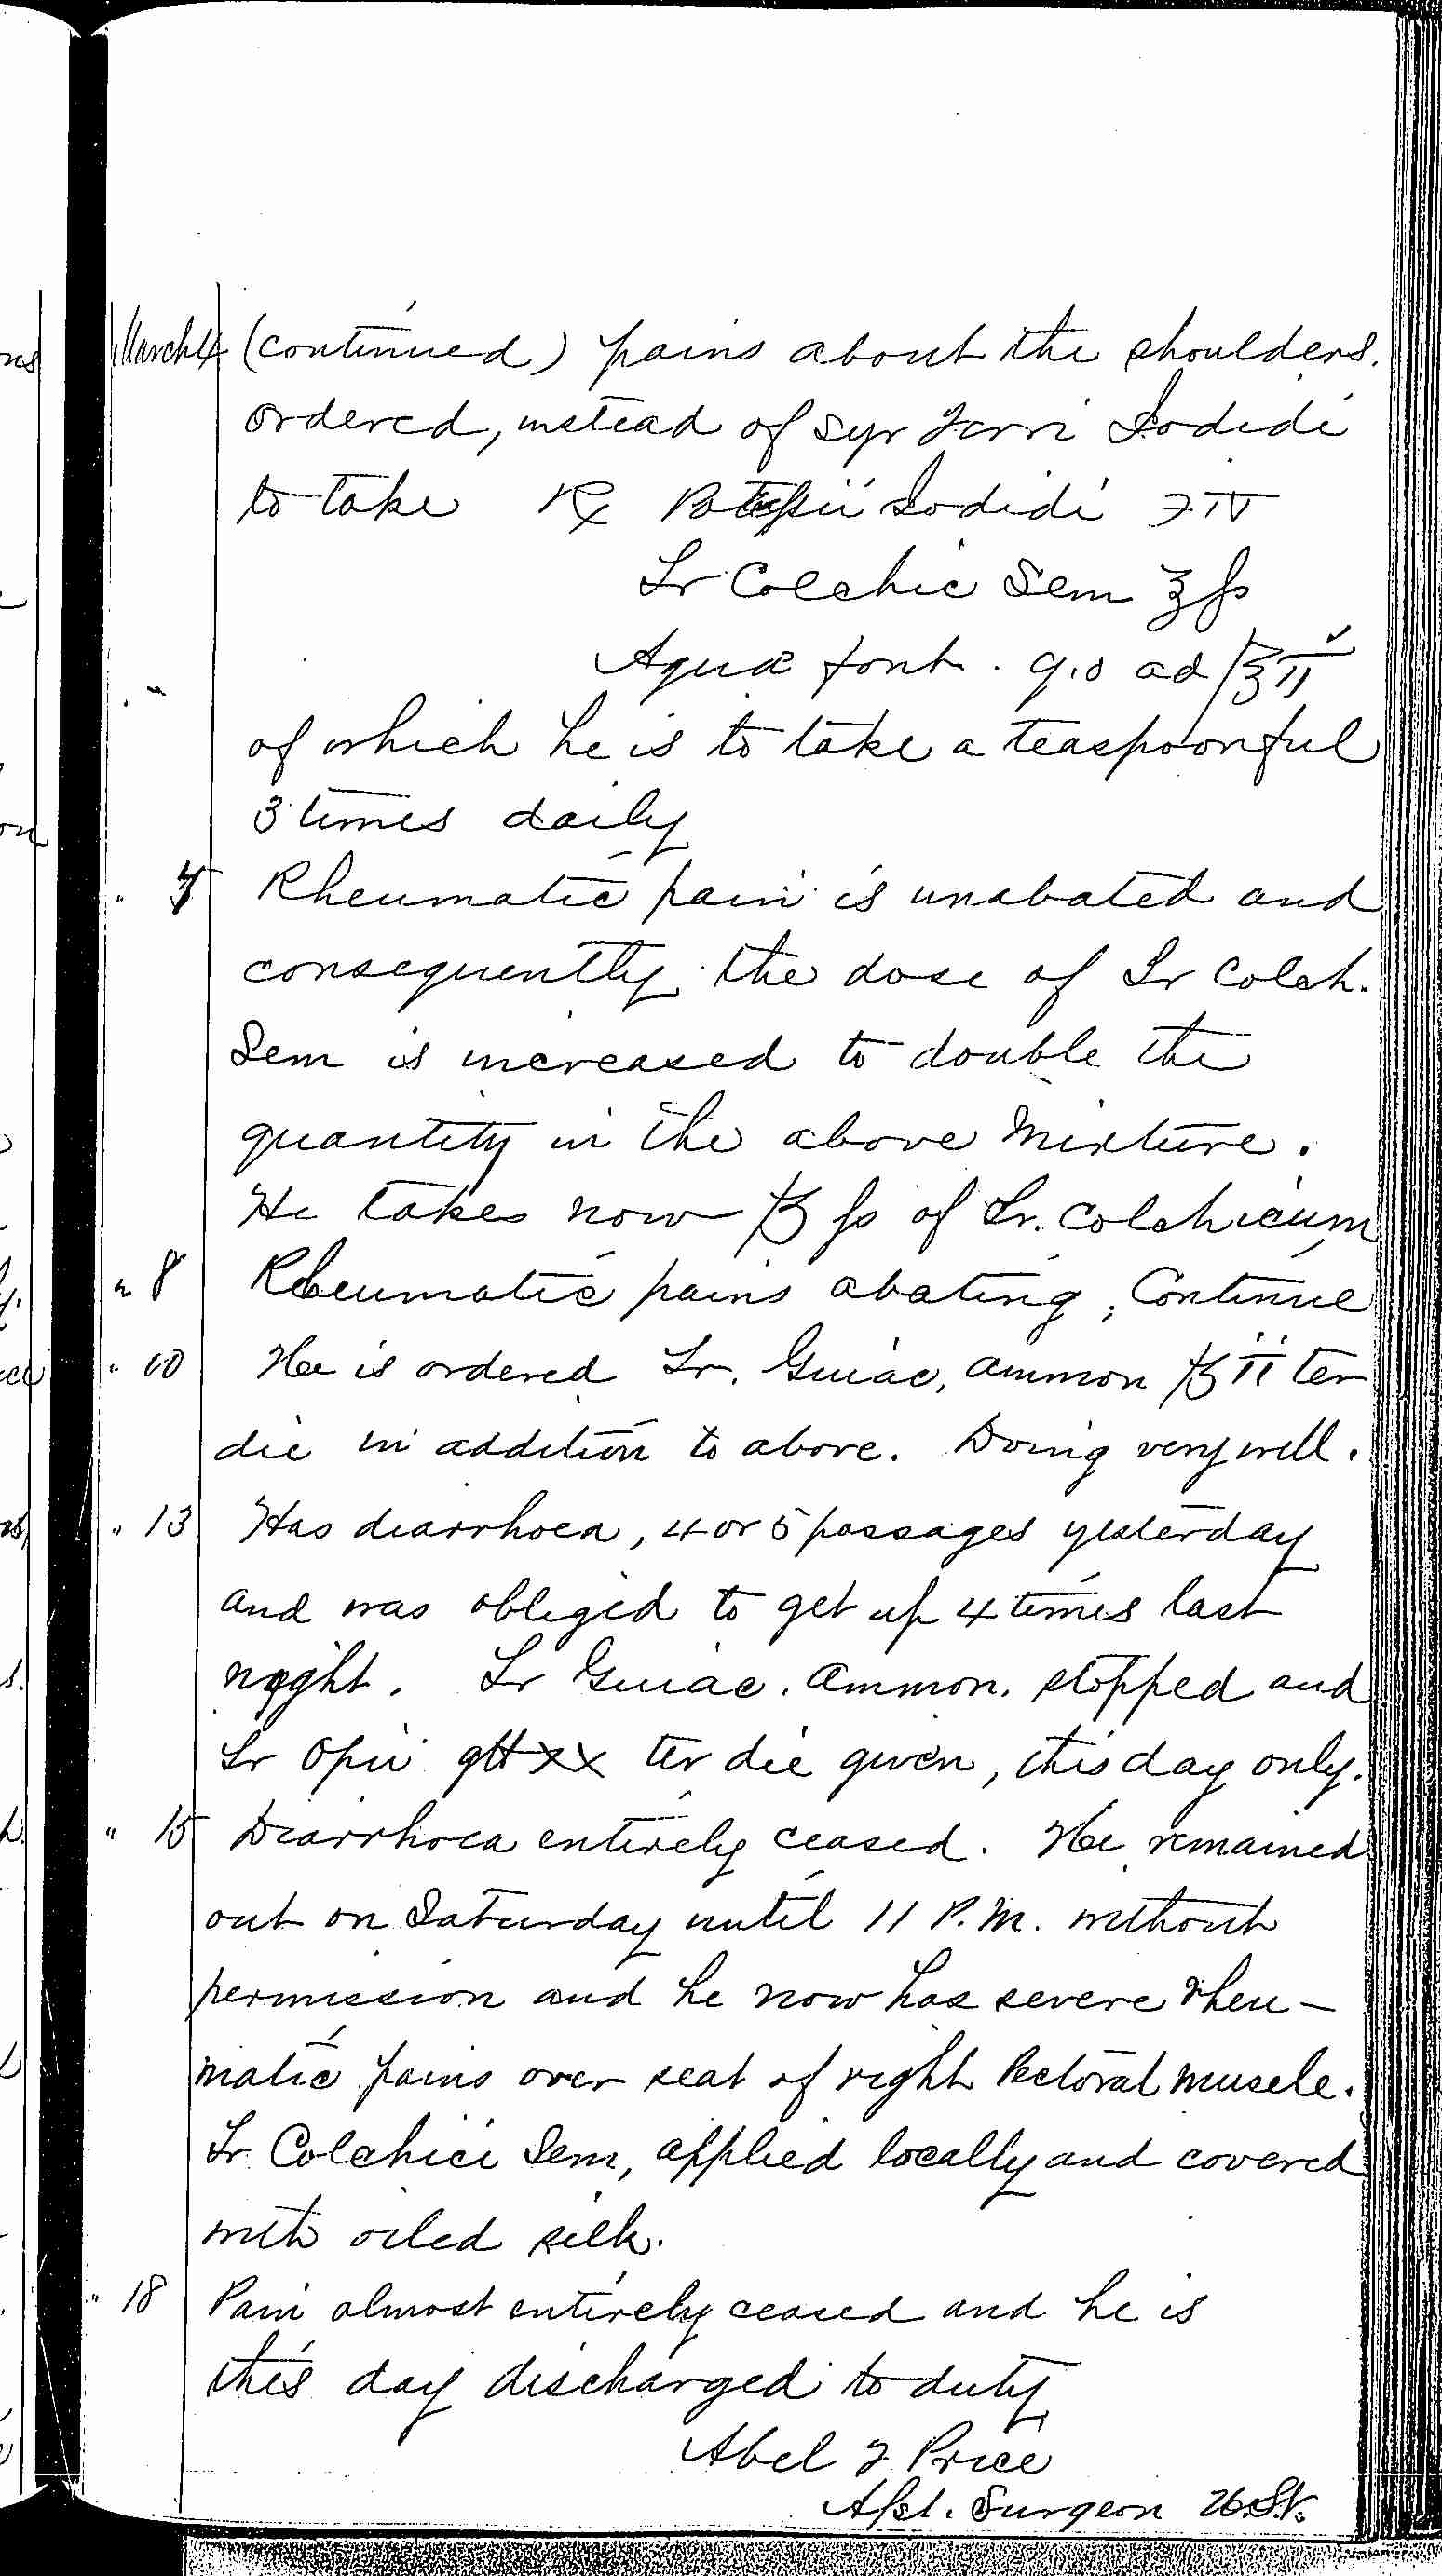 March 4 (continued) pains about the shoulders.
Ordered, instead of Syr Ferri Iodidi
to take ℞ Potassii Iodidi ʒ IV
Tr Colchic Sem ℥ ſs
Aquæ font. q.s ad ℥ II
of which he is to take a teaspoonful
3 times daily
" 5 Rheumatic pain is unabated and
consequently the dose of Tr Colch.
Sem is increased to double the
quantity in the above Mixture.
He takes now fʒ ſs of Tr. Colchicum
" 8 Rheumatic pains abating, Continue
" 10 He is ordered Tr. Guiac, Ammon fʒ II ter
die in addition to above. Doing very well.
" 13 Has diarrhoea, 4 or 5 passages yesterday
and was obliged to get up 4 times last
night. Tr Guiac. Ammon. stopped and
Tr Opii gtt xx ter die given, this day only.
" 15 Diarrhoea entirely ceased. He remained
out on Saturday until 11 P.M. without
permission and he now has severe rheu-
matic pains over seat of right Pectoral muscle.
Tr Colchici Sem, applied locally and covered
with oiled silk.
" 18 Pain almost entirely ceased and he is
this day discharged to duty
Abel F Price
Asst. Surgeon U.S.N.